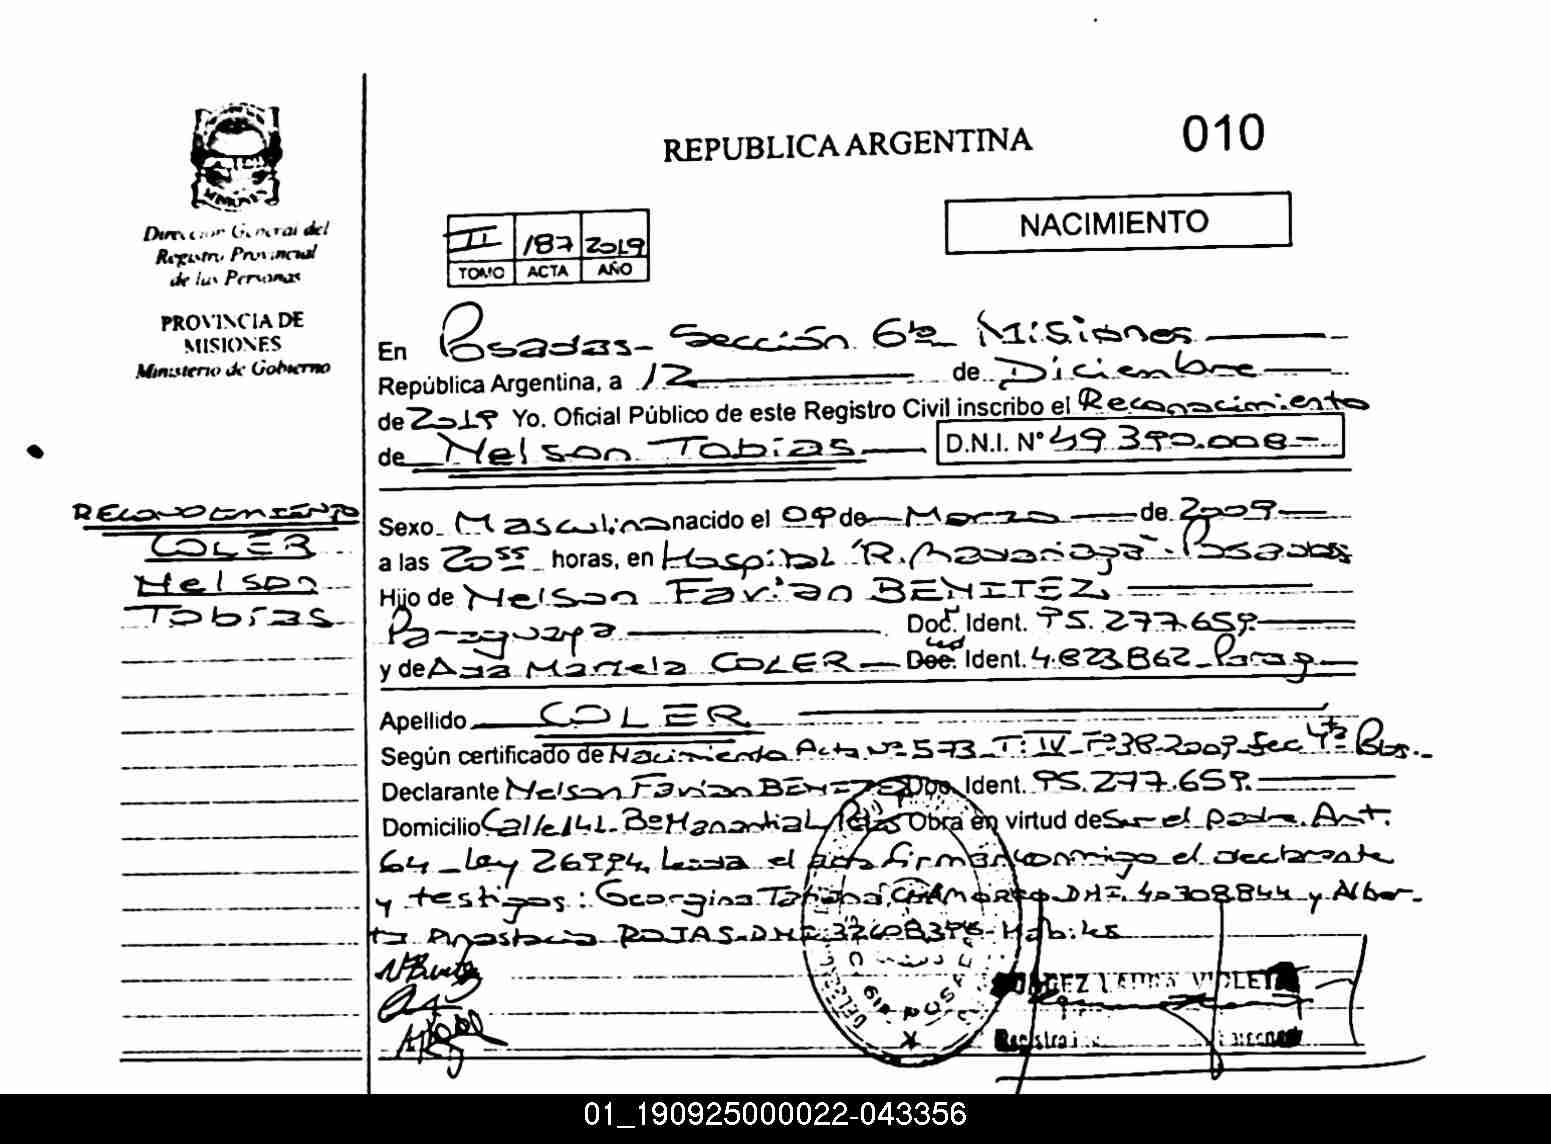 REPUBLICA ARGENTINA
010
Dirección General del
Registro Provincial
de las Personas
PROVINCIA DE
MISIONES
Ministerio de Gobierno
NACIMIENTO
II 187 2019
TOMO ACTA AÑO
En Posadas - Sección 6ta Misiones
República Argentina, a 12 de Diciembre
de 2019 Yo. Oficial Público de este Registro Civil inscribo el Reconocimiento
de Nelson Tobías D.N.I. N° 49.390.008
RECONOCIMIENTO
COLER
Nelson
Tobías
Sexo Masculino nacido el 09 de Marzo de 2009
a las 20 55 horas, en Hospital "R. Madariaga". Posadas
Hijo de Nelson Favian BENITEZ,
Paraguaya Doc. Ident. 95.277.659.
y de Ana Mariela COLER Doc. Ident. 4.823.862 Parag
Apellido COLER
Según certificado de Nacimiento Acta N° 573 T: IV F° 38 2009 Sec 4ta Pdas.
Declarante Nelson Favian BENITEZ Doc. Ident. 95.277.659.
Domicilio Calle 142. B° Manantial Pdas Obra en virtud de Ser el padre. Art.
64 Ley 26994, Leida el acta firman conmigo el declarante
y testigos: Georgina Tatiana CHAMORRO DNI. 40308844 y Alber-
to Anastacio ROJAS DNI 32608396 Habiles
LAURA VIOLETA
01_190925000022-043356